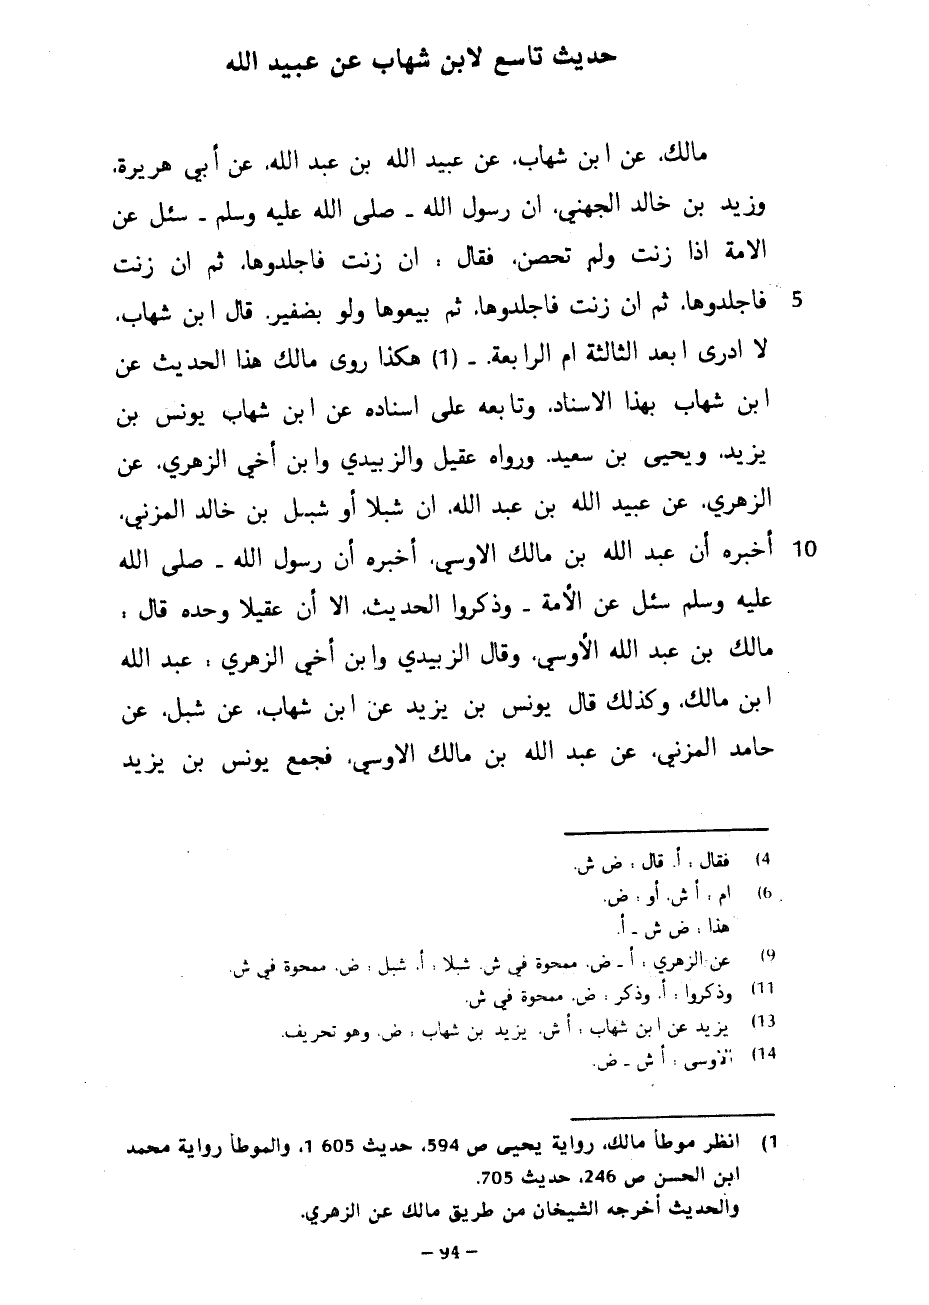 حديث تاسع لابن شهاب عن عبيد الله
مالك، عن ابن شهاب، عن عبيد الله بن عبد الله، عن أبي هريرة،
وزيد بن خالد الجهني، ان رسول الله ـ صلى الله عليه وسلم ـ سئل عن
الامة اذا زنت ولم تحصن، فقال : ان زنت فاجلدوها، ثم ان زنت
5 فاجلدوها، ثم ان زنت فاجلدوها، ثم بيعوها ولو بضفير. قال ابن شهاب،
لا ادرى ابعد الثالثة ام الرابعة. ـ (1) هكذا روى مالك هذا الحديث عن
ابن شهاب بهذا الاسناد، وتابعه على اسناده عن ابن شهاب يونس بن
يزيد، ويحيى بن سعيد. ورواه عقيل والزبيدي وابن أخي الزهري، عن
الزهري، عن عبيد الله بن عبد الله، ان شبلا أو شبل بن خالد المزني،
10 أخبره أن عبد الله بن مالك الاوسي، أخبره أن رسول الله ـ صلى الله
عليه وسلم سئل عن الأمة ـ وذكروا الحديث، الا أن عقيلا وحده قال :
مالك بن عبد الله الأوسي، وقال الزبيدي وابن أخي الزهري : عبد الله
ابن مالك، وكذلك قال يونس بن يزيد عن ابن شهاب، عن شبل، عن
حامد المزني، عن عبد الله بن مالك الاوسي، فجمع يونس بن يزيد
4) فقال : أ. قال : ض ش.
6) ام : أ ش. أو : ض.
هذا : ض ش ـ أ.
9) عن الزهري : أ ـ ض. ممحوة في ش. شبلا : أ. شبل : ض. ممحوة في ش.
11) وذكروا : أ. وذكر : ض. ممحوة في ش.
13) يزيد عن ابن شهاب : أ ش. يزيد بن شهاب : ض. وهو تحريف.
14) الاوسى : أ ش ـ ض.
1) انظر موطأ مالك، رواية يحيى ص 594، حديث 605 1، والموطأ رواية محمد
ابن الحسن ص 246، حديث 705.
والحديث أخرجه الشيخان من طريق مالك عن الزهري.
– 94 –